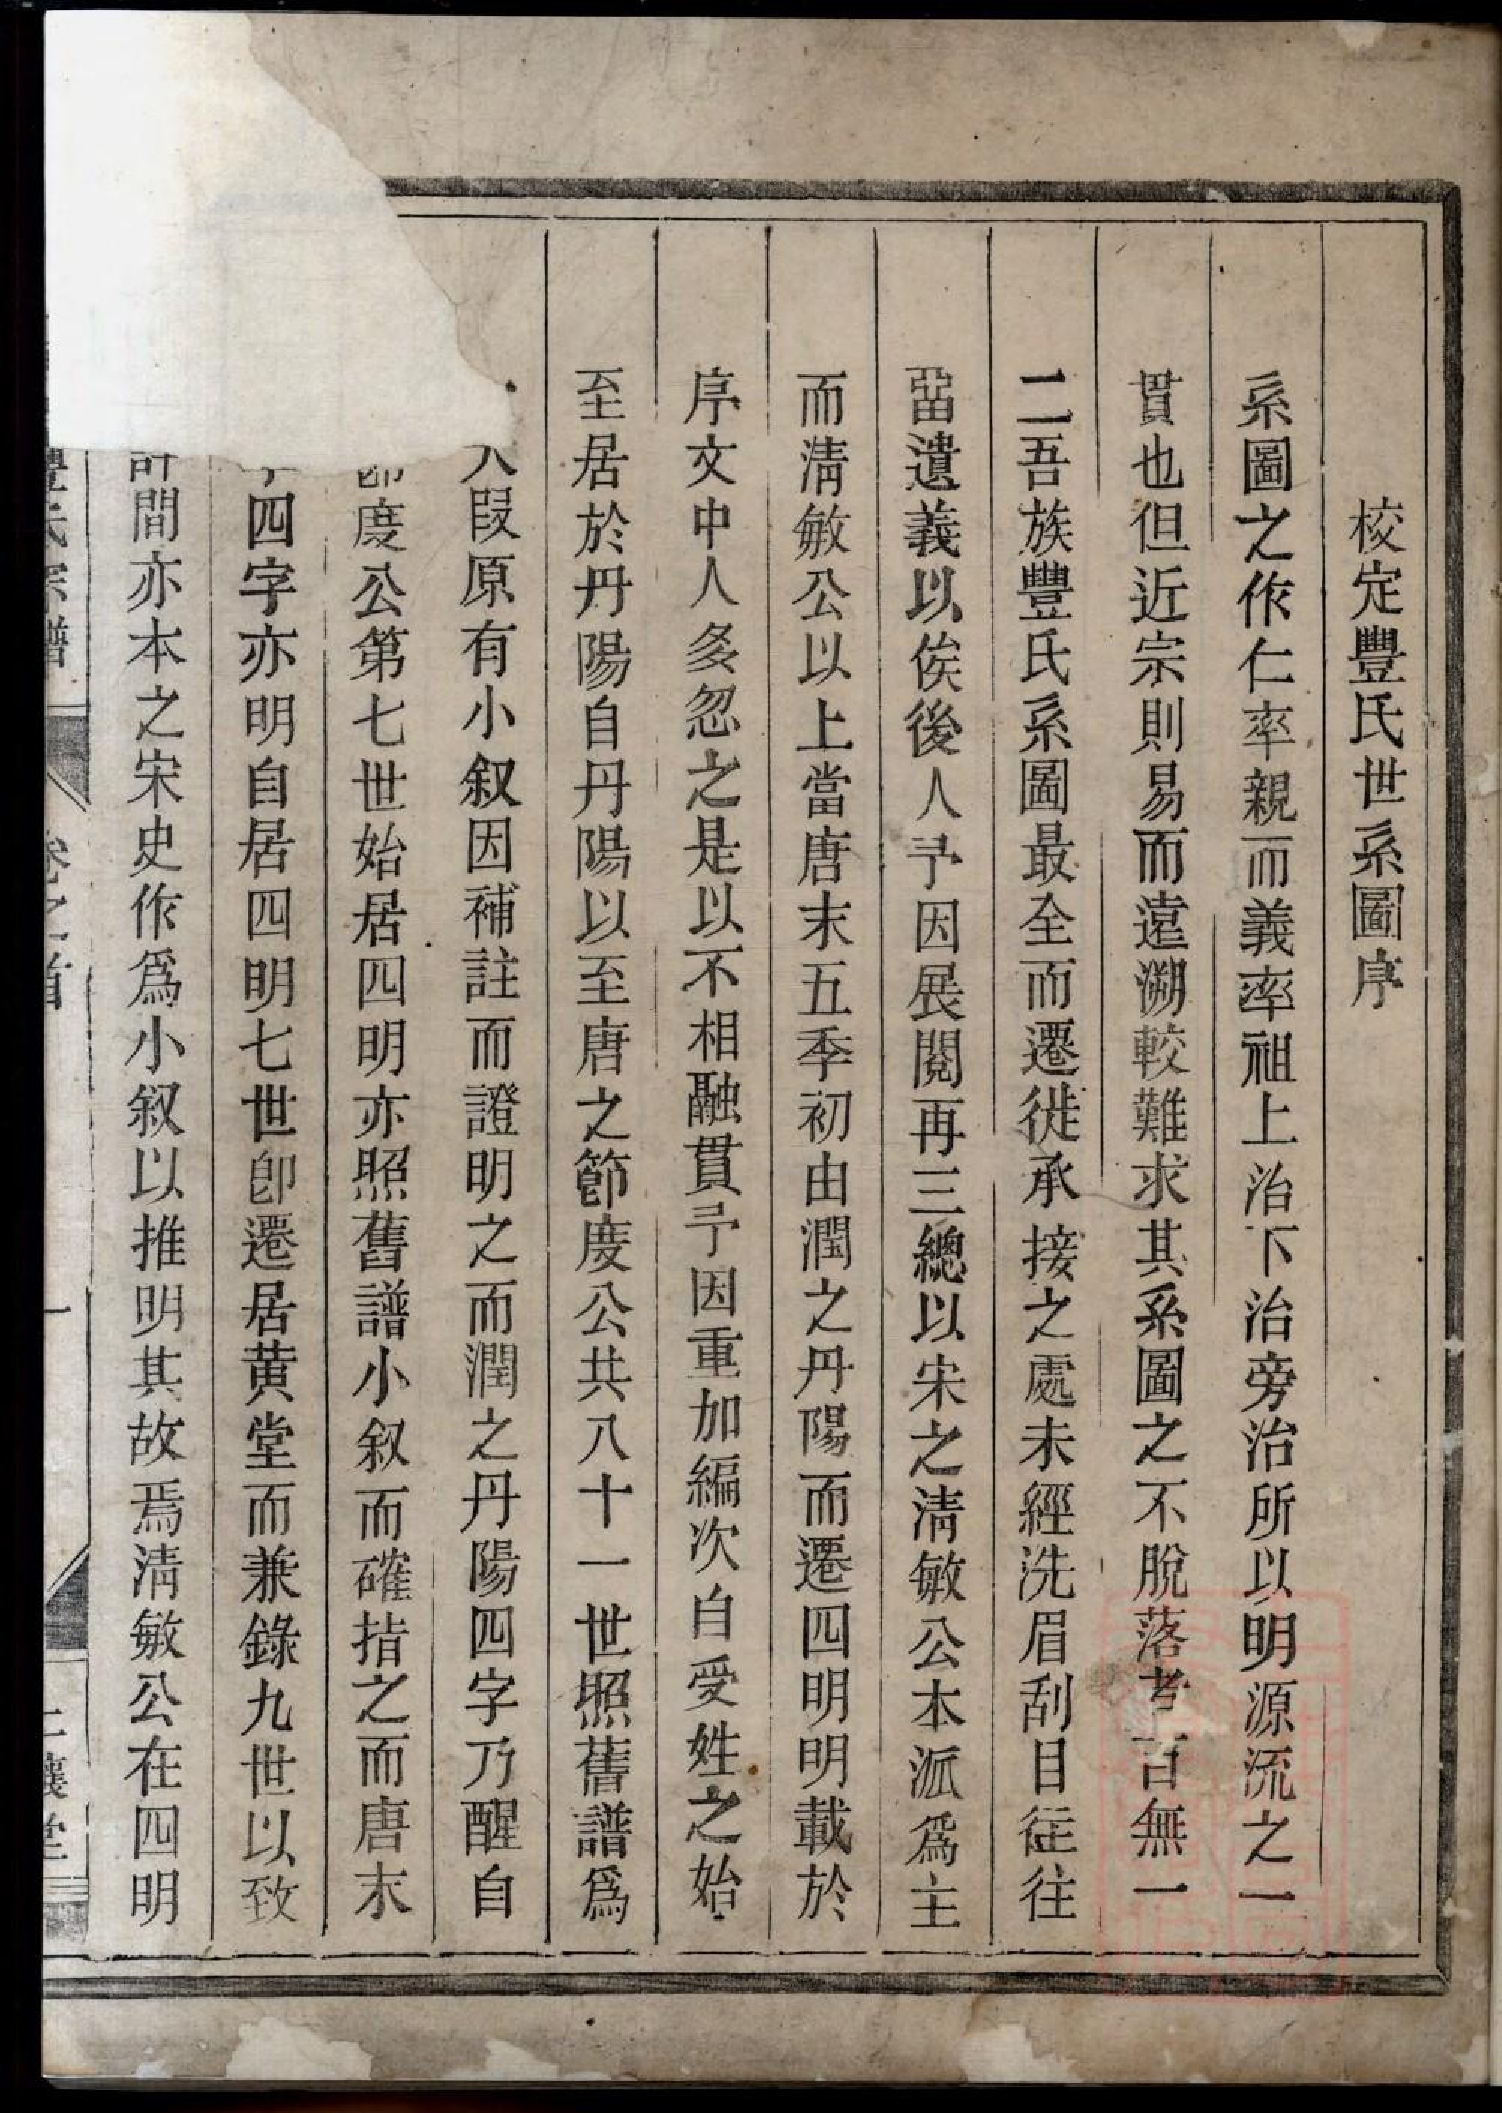 校定豐氏世系圖序
系圖之作仁率親而義率祖上治下治旁治所以明源流之一
貫也但近宗則易而遠溯較難求其系圖之不脫落者百無一
二吾族豐氏系圖最全而遷徙承接之處未經洗眉刮目往往
畱遺義以俟後人予因展閱再三總以宋之淸敏公本派爲主
而淸敏公以上當唐末五季初由潤之丹陽而遷四明明載於
序文中人多忽之是以不相融貫予因重加編次自受姓之始
至居於丹陽自丹陽以至唐之節度公共八十一世照舊譜爲
大段原有小叙因補註而證明之而潤之丹陽四字乃醒自
節度公第七世始居四明亦照舊譜小叙而確指之而唐末
四字亦明自居四明七世卽遷居黄堂而兼錄九世以致
間亦本之宋史作爲小叙以推明其故焉淸敏公在四明
豐氏宗譜 卷之首 一